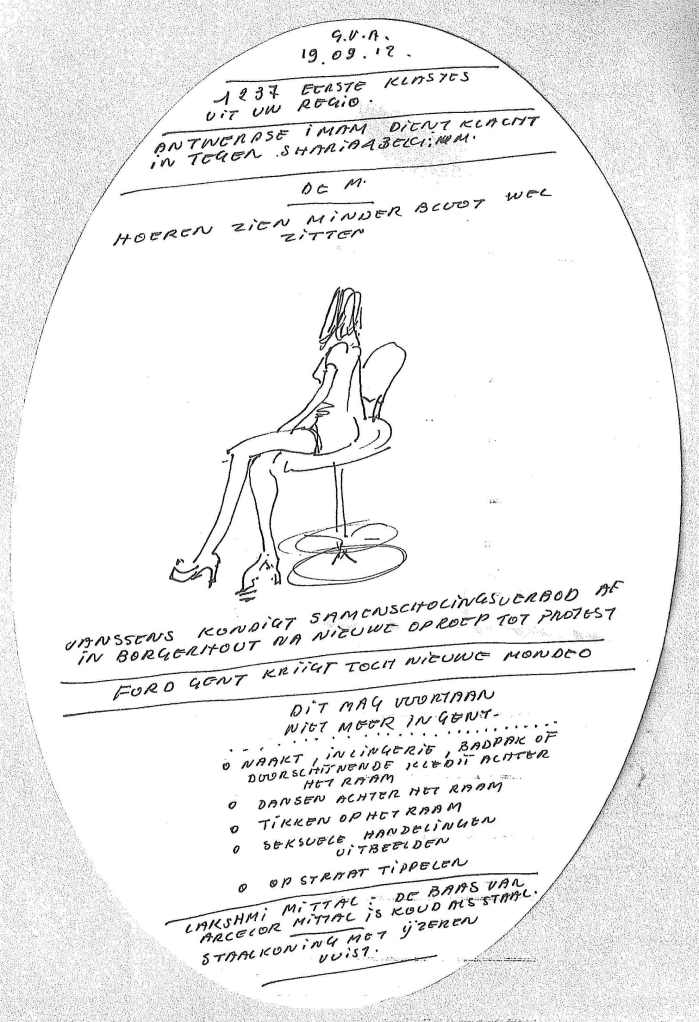 G.V.A.
19.09.12.
1237 EERSTE KLASJES
UIT UW REGIO.
ANTWERPSE IMAM DIENT KLACHT
IN TEGEN SHARIA4BELGIUM.
DE M.
HOEREN ZIEN MINDER BLOOT WEL
ZITTEN
JANSSENS KONDIGT SAMENSCHOLINGSVERBOD AF
IN BORGERHOUT NA NIEUWE OPROEP TOT PROTEST
FORD GENT KRIJGT TOCH NIEUWE MONDEO
DIT MAG VOORTAAN
NIET MEER IN GENT-
o NAAKT, IN LINGERIE, BADPAK OF
DOORSCHIJNENDE KLEDIJ ACHTER
HET RAAM
o DANSEN ACHTER HET RAAM
o TIKKEN OP HET RAAM
o SEKSUELE HANDELINGEN
UITBEELDEN
o OP STRAAT TIPPELEN
LAKSHMI MITTAL: DE BAAS VAN
ARCELOR MITTAL IS KOUD ALS STAAL.
STAALKONING MET IJZEREN
VUIST.